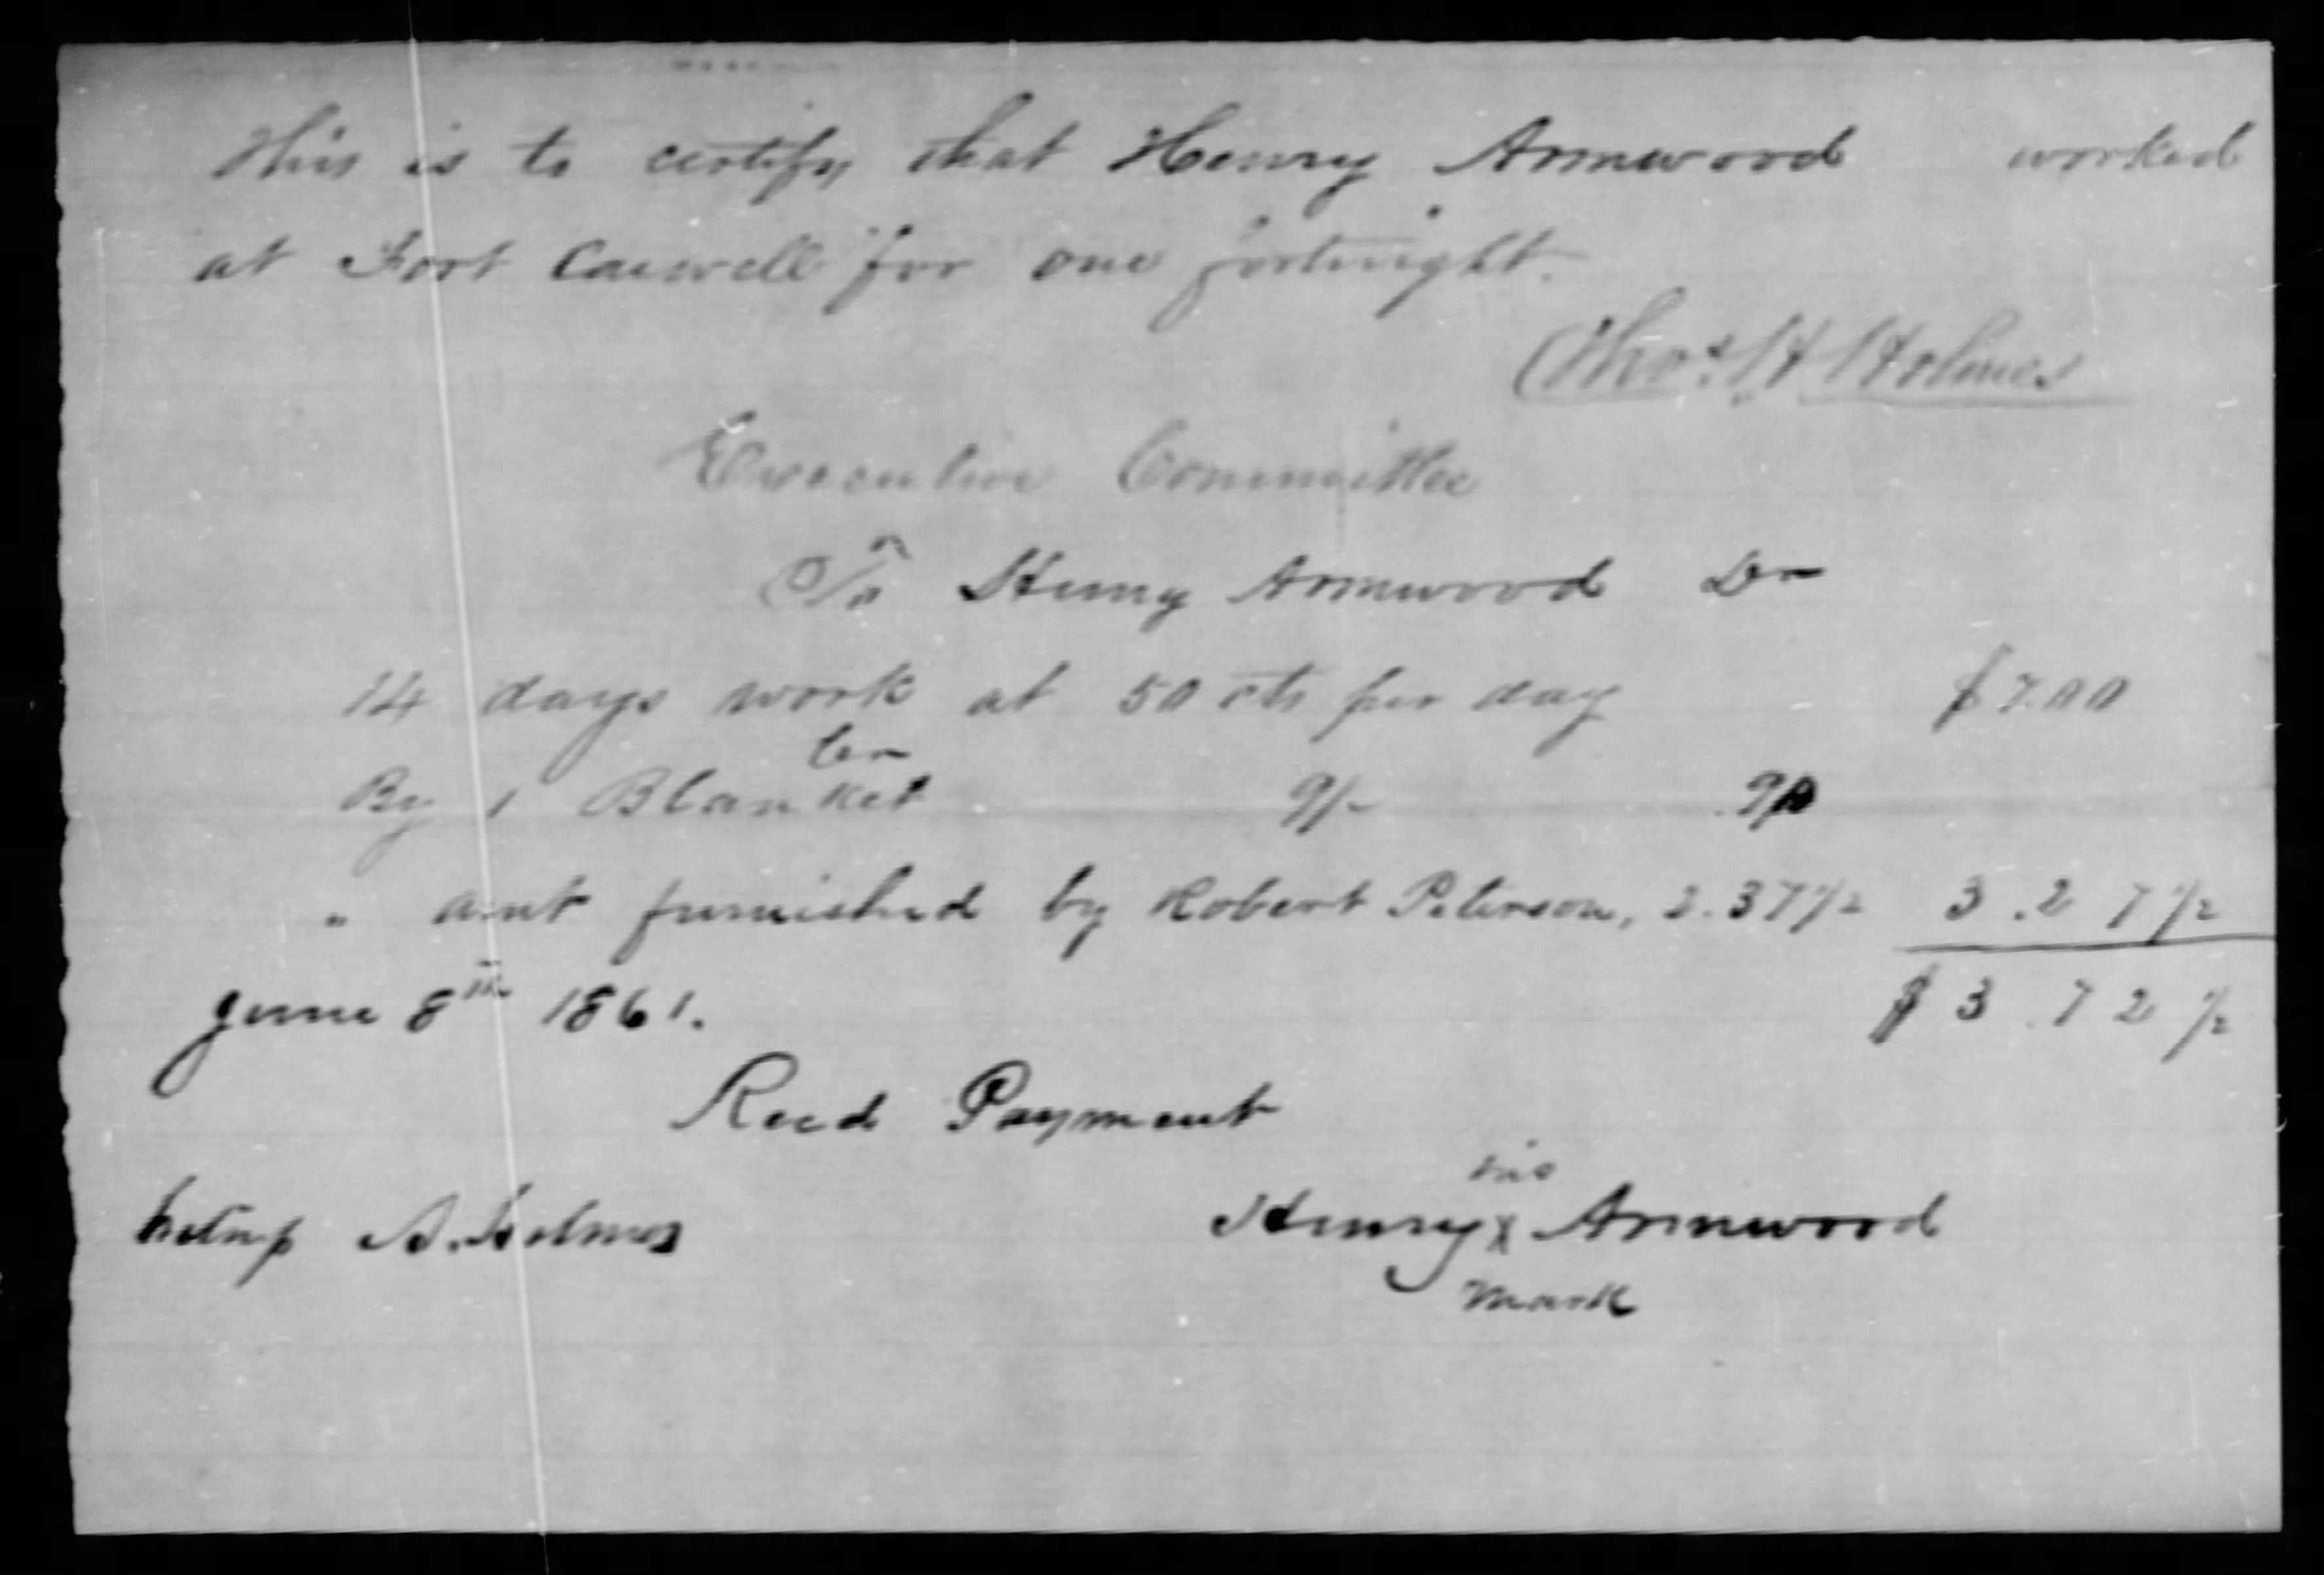 This is to certify that Henry Armwood worked
at Fort Caswell for one fortnight.
Thos. H Holmes
Executive Committee
To Henry Armwood Dr
14 days work at 50 cts per day $7.00
Cr
By 1 Blanket 9/- .90
" amt furnished by Robert Peterson, 2.37 1/2 3.27 1/2
June 8th 1861. $3.72 1/2
Recd Payment
his
A. Holmes Henry X Armwood
mark